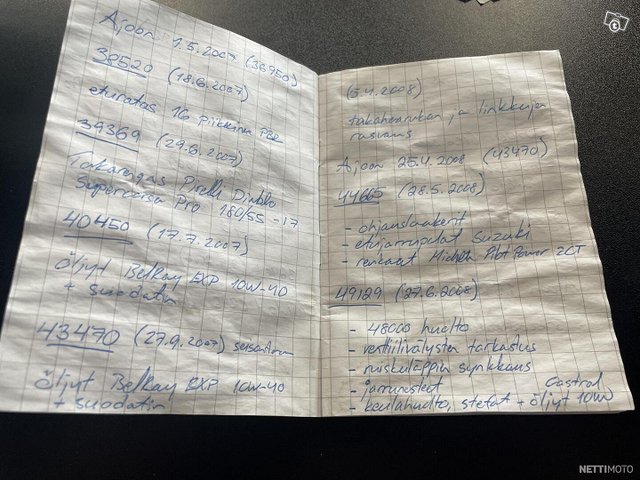 Ajoon 1.5.2007 (36950)
38520 (18.6.2007)
eturatas 16 piikkinen
39369 (29.6.2007)
Takarengas Pirelli Diablo
Supercorsa Pro 180/55-17
40450 (17.7.2007)
öljyt BelRay EXP 10W-40
+ suodatin
43470 (27.9.2007) seisontaan
öljyt BelRay EXP 10W-40
+ suodatin
(6.4.2008)
takahaarukan ja linkkujen
rasvaus
Ajoon 25.4.2008 (43470)
44665 (28.5.2008)
- ohjauslaakerit
- etujarrupalat Suzuki
- renkaat Michelin Pilot Power 2CT
49129 (27.6.2008)
- 48000 huolto
- venttiilivälysten tarkastus
- ruiskuläppien synkkaus
- jarrunesteet
- keulahuolto, stefat + öljyt Castrol 10W
NETTIMOTO